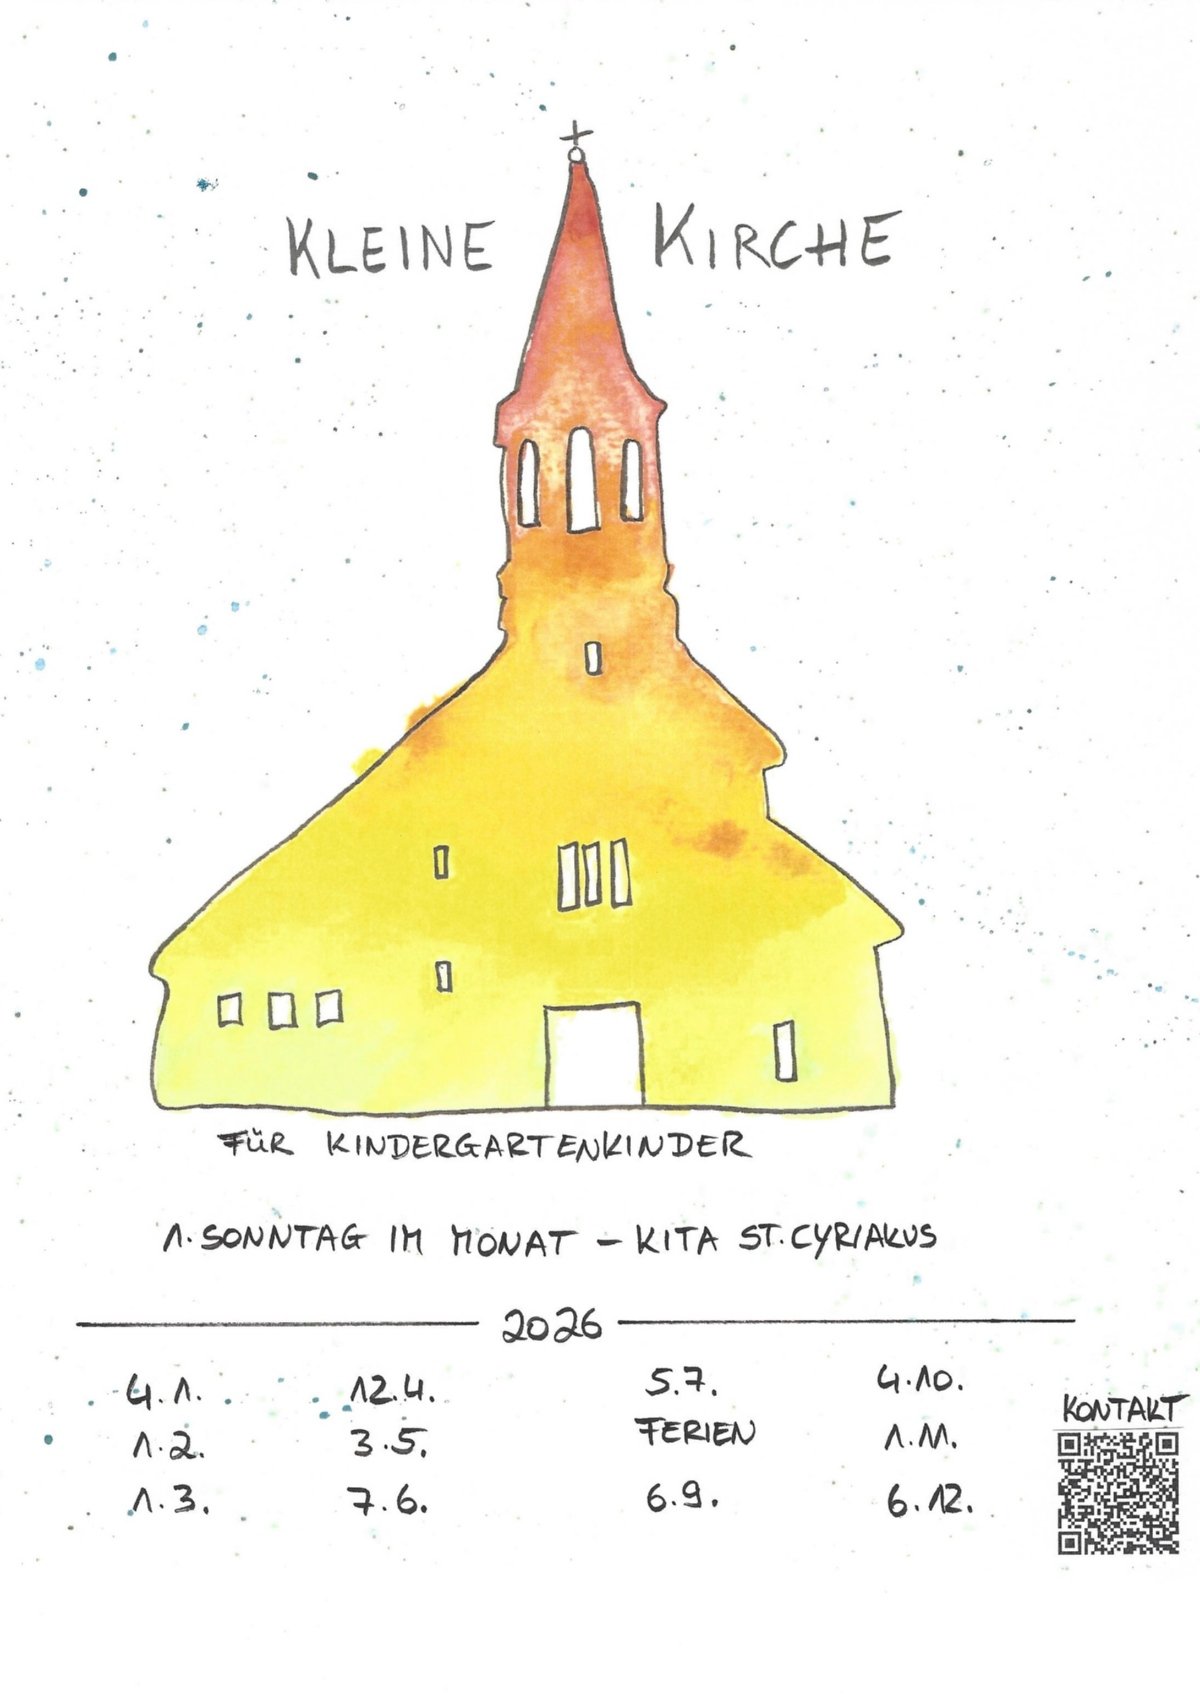 KLEINE KIRCHE
FÜR KINDERGARTENKINDER
1. SONNTAG IM MONAT – KITA ST. CYRIAKUS
2026
4.1.
1.2.
1.3.
12.4.
3.5.
7.6.
5.7.
FERIEN
6.9.
4.10.
1.11.
6.12.
KONTAKT